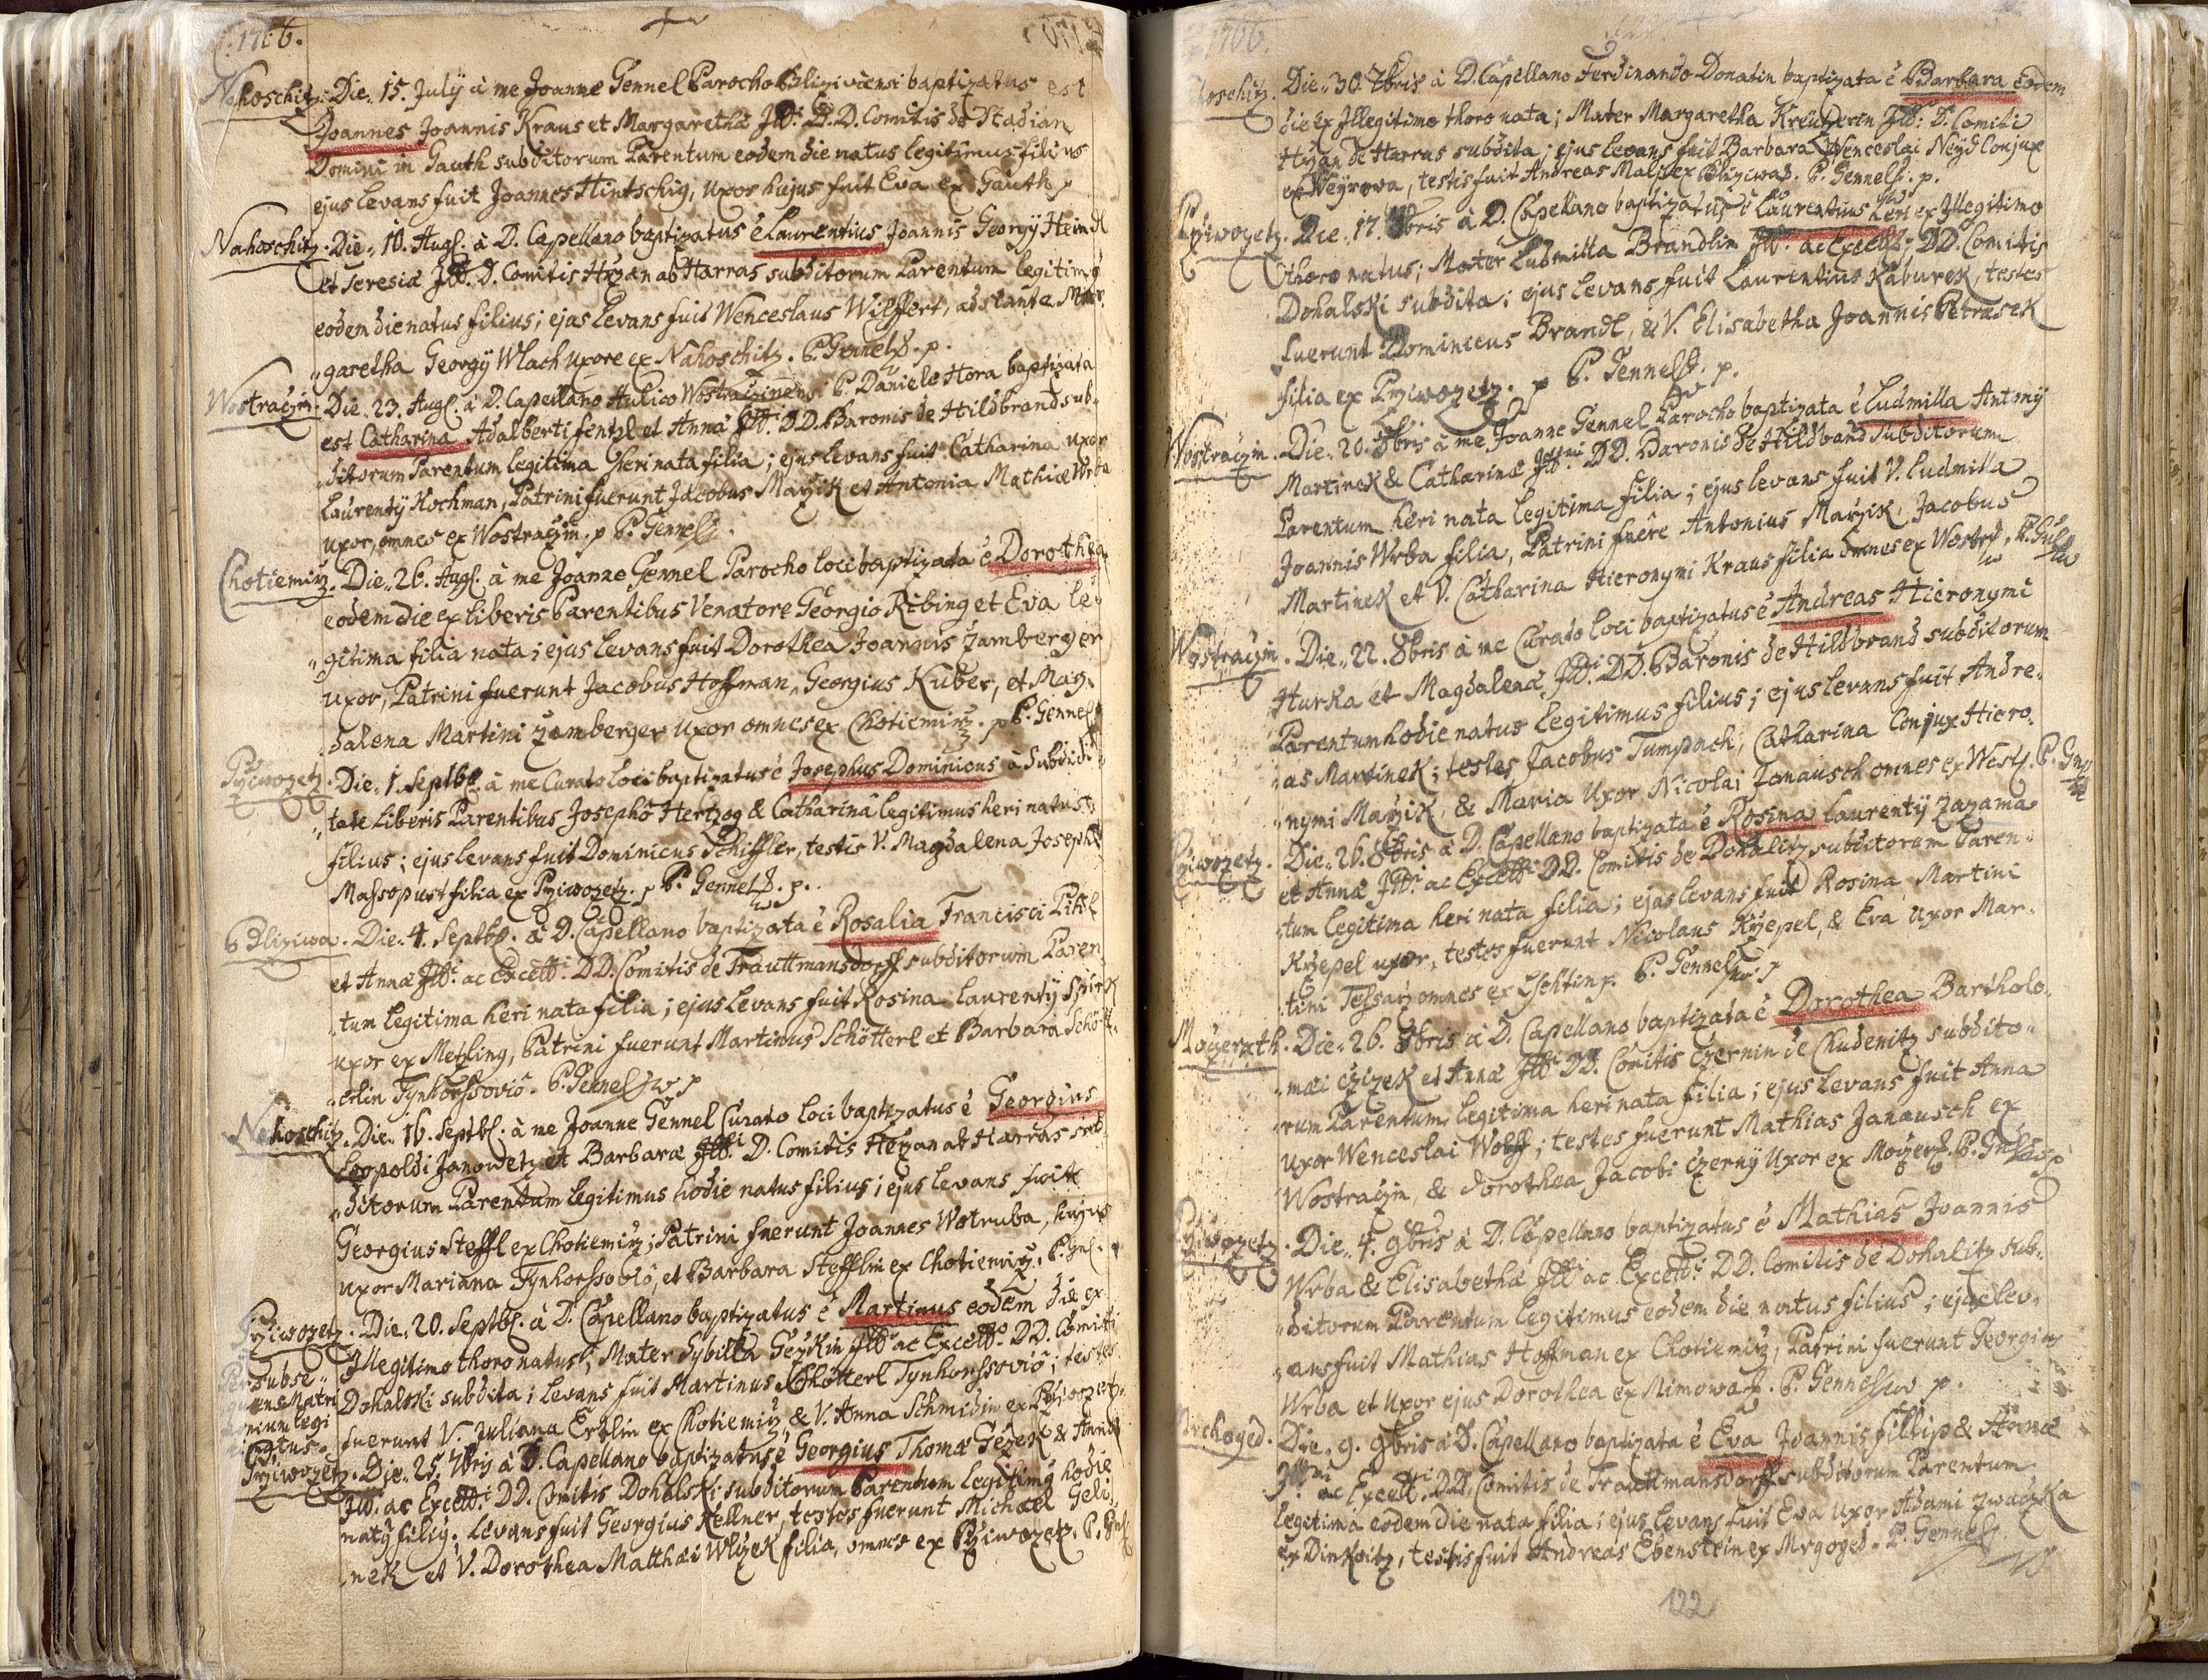 1766.
Nahoschitz. Die 15. July à me Joanne Gennel Parocho Blizivensi baptizatus est
Joannes Joannis Kraus et Margaretha Illmi. D.D. Comitis de Stadian
Domini in Gauth subditorum Parentum eodem die natus legitimus filius
ejus levans fuit Joannes Hintschig, uxor hujus fuit Eva ex Gauth p
Nahoschitz. Die 10. Augs. à D. Capellano baptizatus ẽ Laurentius Joannis Georgij Heindl
et Teresiæ Illmi. D. Comitis Hržan ab Harras subditorum Parentum legitimg
eodem die natus filius; ejus levans fuit Wenceslaus Wilffert, adstante Mar-
garetha Georgij Wlach uxore ex Nahoschitz. P. Gennel p.
Wostraczin. Die 23. Augs. à D. Capellano Aulico Wostraczinensi P. Daniele Hora baptizata
est Catharina Adalberti fentzl et Anna Illmi. DD. Baronis de Hildbrand sub-
ditorum Parentum legitima heri nata filia; ejus levans fuit Catharina uxor
Laurentij Kochman, Patrini fuerunt Jacobus Maržik et Antonia Mathiæ Wrba
uxor, omnes ex Wostraczin. p P. Gennel
Chotiemirz. Die 26. Augs. à me Joanne Gennel Parocho loci baptizata ẽ Dorothea
eodem die ex liberis Parentibus Venatore Georgio Ribing et Eva le-
gitima filia nata; ejus levans fuit Dorothea Joannis Zamberger
uxor, Patrini fuerunt Jacobus Hoffman, Georgius Kuber, et Mag-
dalena Martini Zamberger uxor omnes ex Chotiemirz. p P. Gennel
Przivozetz. Die 1. Septbs. à me Curato loci baptizatus ẽ Josephus Dominicus à Subdi-
tate liberis Parentibus Josepho Hertzog & Catharinâ legitimus heri natus
filius; ejus levans fuit Dominicus Schiffler, testis V. Magdalena Josephi
Massopust filia ex Przivozetz. p P. Gennel p.
Bliziwa. Die 4. Septbs. à D. Capellano baptizata ẽ Rosalia Francisci Pitsl
et Annæ Illmi. ac Excellmi. DD. Comitis de Trauttmansdorff subditorum Paren-
tum legitima heri nata filia; ejus levans fuit Rosina Laurentij Spirk
uxor ex Metzling, Patrini fuerunt Martinus Schötterl et Barbara Schött-
erlin Tynhorssoviô. P. Gennel p
Nahoschitz. Die 16. Septbs. à me Joanne Gennel Curato loci baptizatus ẽ Georgius
Leopoldi Janowetz et Barbaræ Illmi. D. Comitis Hržan ab Harras sub-
ditorum Parentum legitimus hodie natus filius; ejus levans fuit
Georgius Steffl ex Chotiemirz; Patrini fuerunt Joannes Wotruba, hujus
uxor Mariana Tynhorssoviô, et Barbara Stefflin ex Chotiemirz. P. Gnl.
Przivozetz. Die 20. Septbs. à D. Capellano baptizatus ẽ Martinus eodem die ex
Illegitimo thoro natus; Mater Sybilla Gezkin Illmo ac Excellmo. DD. Comiti
Dohalski subdita; levans fuit Martinus Schötterl Tynhorssoviô; testes
fuerunt V. Juliana Ertlin ex Chotiemirz & V. Anna Schmidin ex Przivozetz.
Per subse-
quens Matri
monium legi
timatus.
Przivozetz. Die 25. 7bris à D. Capellano baptizatus ẽ Georgius Thomæ Gezek & Annæ
Illmi. ac Excellmi. DD. Comitis Dohalski subditorum Parentum legitimg hodie
natg filig; levans fuit Georgius Kellner, testes fuerunt Michæl Geli-
nek et V. Dorothea Matthæi Wlczek filia, omnes ex Przivozetz. P. Gnl
1766.
Nahoschitz. Die 30. 7bris à D. Capellano Ferdinando Donatin baptizata ẽ Barbara eodem
die ex Illegitimo thoro nata; Mater Margaretha Kreuzerin Illmo. D. Comiti
Hržan de Harras subdita; ejus levans fuit Barbara Wenceslai Neyd Conjux
ex Weyrowa, testis fuit Andreas Maly ex Blizwa. P. Gennel p.
Przivozetz. Die 17. 8bris à D. Capellano baptizatus ẽ Laurentius heri ex Illegitimo
thoro natus; Mater Ludmilla Brandlin Illmo. ac Excellmo. DD. Comitis
Dohalski subdita; ejus levans fuit Laurentius Kaburek, testes
fuerunt Dominicus Brandl, & V. Elisabetha Joannis Petrasek
filia ex Przivozetz. p P. Gennel p.
Wostraczin. Die 20. 8bris à me Joanne Gennel Parocho baptizata ẽ Ludmilla Antonij
Martinek & Catharinæ Illmi. DD. Baronis de Hildbrand subditorum
Parentum heri nata legitima filia; ejus levans fuit V. Ludmilla
Joannis Wrba filia, Patrini fuêre Antonius Maržik, Jacobus
Martinek et V. Catharina Hieronymi Kraus filia omnes ex Wostrž. P. Gnl
Wostraczin. Die 22. 8bris à me Curato loci baptizatus ẽ Andreas Hieronymi
Hurka et Magdalenæ Illmi. DD. Baronis de Hildbrand subditorum
Parentum hodie natus legitimus filius; ejus levans fuit Andre-
as Martinek; testes Jacobus Tumpach, Catharina Conjux Hiero-
nymi Maržik, & Maria Uxor Nicolai Janausch omnes ex Wost. P. Gnl
Przivozetz. Die 26. 8bris à D. Capellano baptizata ẽ Rosina Laurentij Zazama
et Annæ Illmi. ac Excellmi. DD. Comitis de Dohalitz subditorum Paren-
tum legitima heri nata filia; ejus levans fuit Rosina Martini
Krzepel uxor, testes fuerunt Nicolaus Krzepel, & Eva Uxor Mar-
tini Tessarz omnes ex Lschtin p. P. Gennel p
Mogerzith. Die 26. 8bris à D. Capellano baptizata ẽ Dorothea Bartholo-
mæi Czizek et Annæ Illmi. DD. Comitis Czernin de Chudenitz subdito-
rum Parentum legitima heri nata filia; ejus levans fuit Anna
uxor Wenceslai Wolff; testes fuerunt Mathias Janausch ex
Wostraczin, & Dorothea Jacobi Czerny Uxor ex Mogerž. P. Gnl p
Przivozetz. Die 4. 9bris à D. Capellano baptizatus ẽ Mathias Joannis
Wrba & Elisabethæ Illmi ac Excellmi. DD. Comitis de Dohalitz sub-
ditorum Parentum legitimus eodem die natus filius; ejus lev-
ans fuit Mathias Hoffman ex Chotiemirz, Patrini fuerunt Georgius
Wrba et Uxor ejus Dorothea ex Mimowa. P. Gennel p.
Mrchoged. Die 9. 9bris à D. Capellano baptizata ẽ Eva Joannis Fillip & Annæ
Illmi ac Excellmi. DD. Comitis de Trauttmansdorff subditorum Parentum
legitima eodem die nata filia; ejus levans fuit Eva uxor Adami Zwaczka
ex Dinkovitz, testis fuit Andreas Ebenstein ex Mrgoged. P. Gennel
122